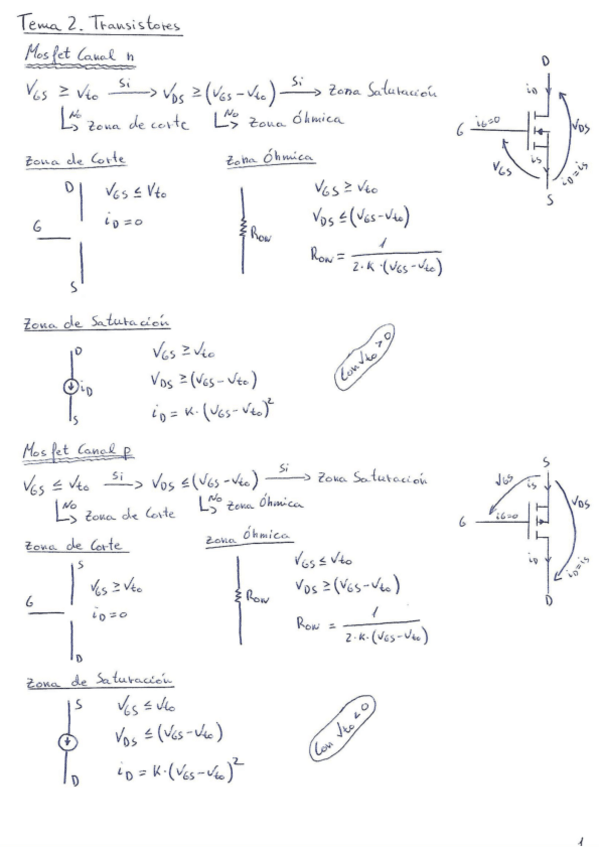 Tema 2. Transistores
Mosfet Canal n
V_GS ≥ V_to —Si→ V_DS ≥ (V_GS - V_to) —Si→ Zona Saturación
No ↳ Zona de corte No ↳ Zona Óhmica
D
i_D
G i_G=0
V_DS
V_GS
i_S
i_D = i_S
S
Zona de Corte
D
G
S
V_GS ≤ V_to
i_D = 0
Zona Óhmica
R_ON
V_GS ≥ V_to
V_DS ≤ (V_GS - V_to)
R_ON = 1 / (2·K·(V_GS - V_to))
Zona de Saturación
D
i_D
S
V_GS ≥ V_to
V_DS ≥ (V_GS - V_to)
i_D = K·(V_GS - V_to)²
Con V_to > 0
Mosfet Canal p
V_GS ≤ V_to —Si→ V_DS ≤ (V_GS - V_to) —Si→ Zona Saturación
No ↳ Zona de Corte No ↳ Zona Óhmica
S
V_GS
i_S
V_DS
G i_G=0
i_D
i_D = i_S
D
Zona de Corte
S
G
D
V_GS ≥ V_to
i_D = 0
Zona Óhmica
R_ON
V_GS ≤ V_to
V_DS ≥ (V_GS - V_to)
R_ON = 1 / (2·K·(V_GS - V_to))
Zona de Saturación
S
D
V_GS ≤ V_to
V_DS ≤ (V_GS - V_to)
i_D = K·(V_GS - V_to)²
Con V_to < 0
1